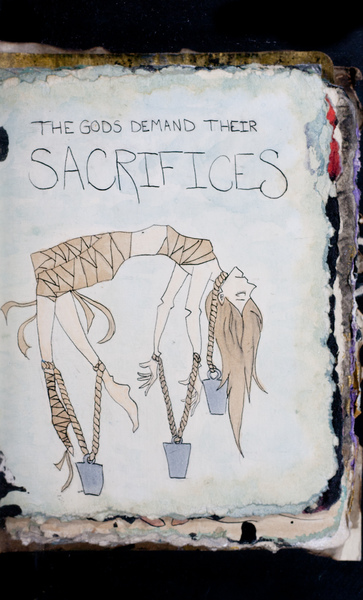 THE GODS DEMAND THEIR
SACRIFICES